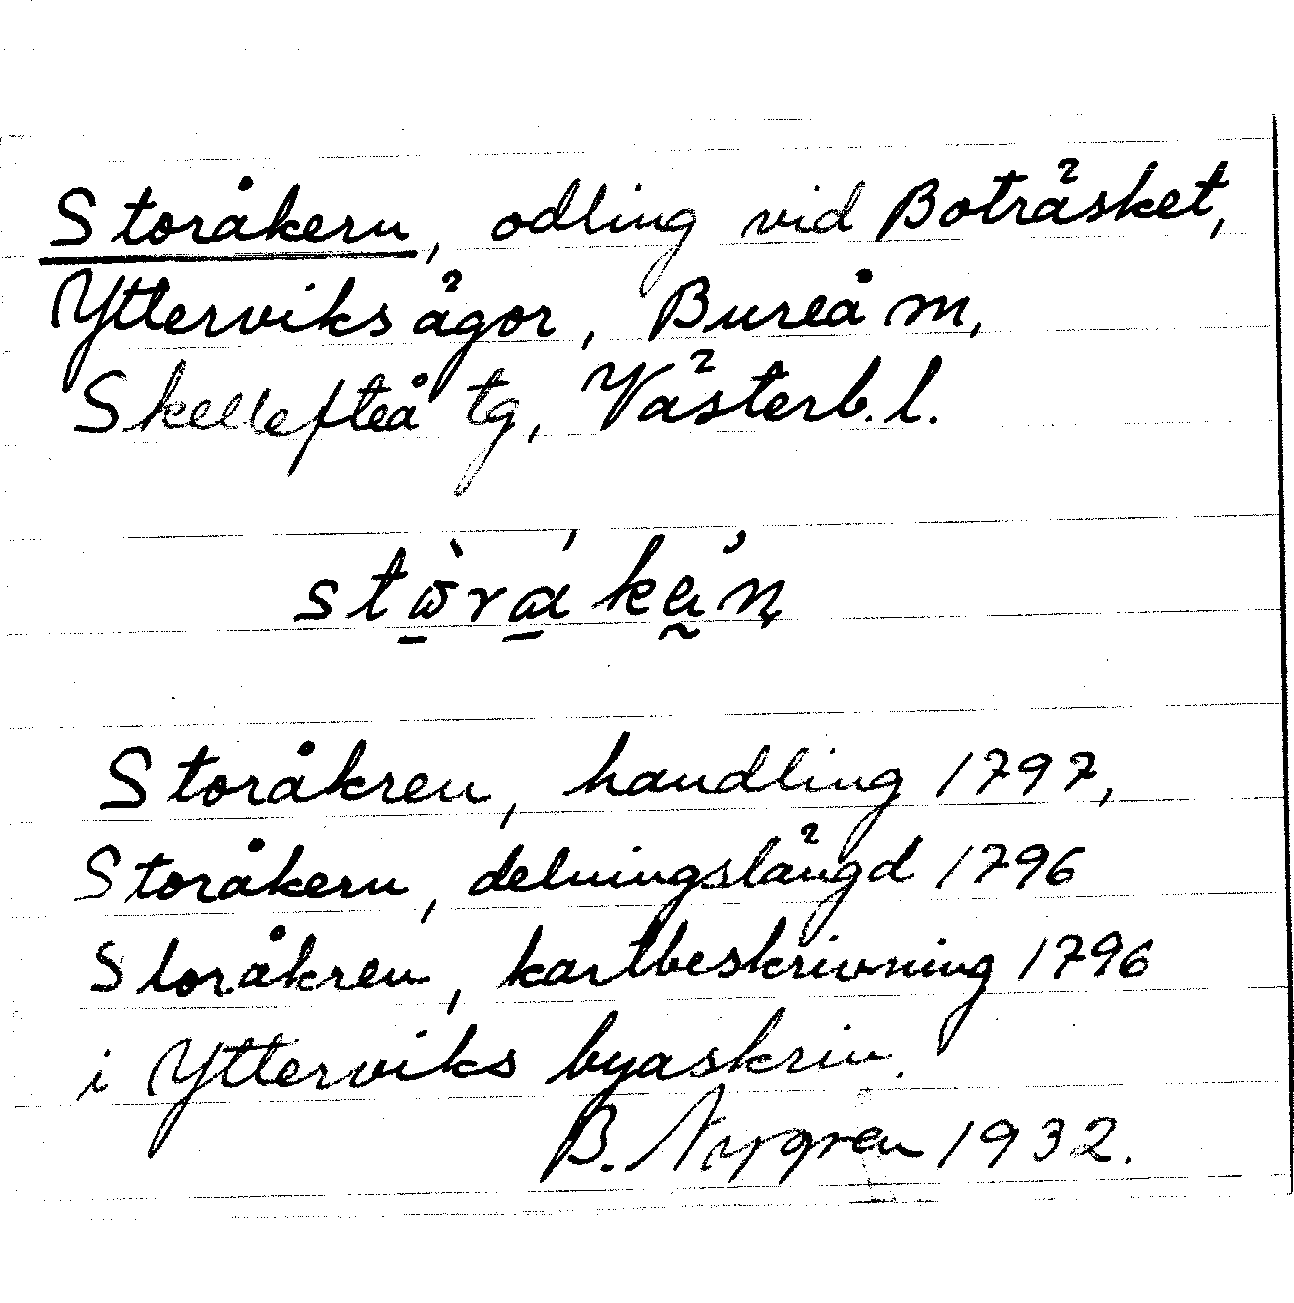 Storåkern, odling vid Boträsket,
Ytterviks ägor, Bureå m,
Skellefteå tg, Västerb. l.
Storåkren, handling 1797,
Storåkern, delningslängd 1796
Storåkren, kartbeskrivning 1796
i Ytterviks byaskrin.
B. Nygren 1932.